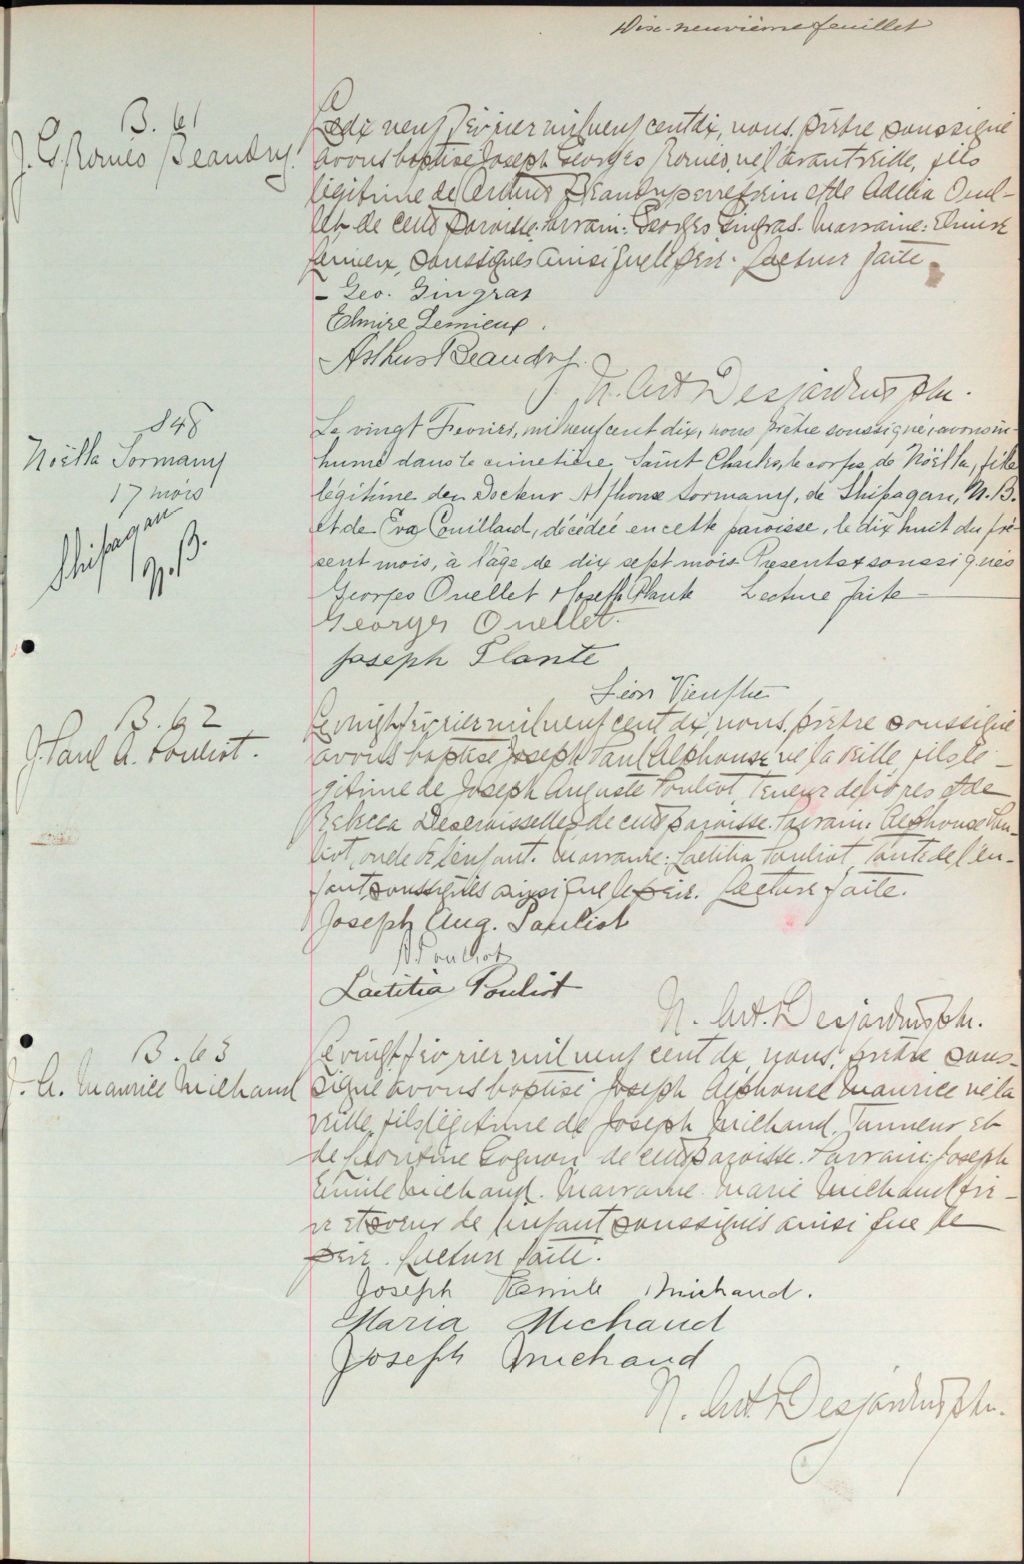 Dix-neuvième feuillet
B. 61
J. Gs. Romeo Beaudry.
Le dix neuf février mil neuf cent dix, nous, prêtre soussigné
avons baptisé Joseph Georges Romeo, né l'avant veille, fils
légitime de Arthur Beaudry et de Adelia Ouel-
let de cette paroisse. Parrain: Georges Gingras. Marraine: Elmire
Lemieux, soussignés ainsi que le père. Lecture faite.
- Geo. Gingras
Elmire Lemieux.
Arthur Beaudry.
N. Art. Desjardins ptre.
S48
Noëlla Sormany
17 mois
Shipagan
N.B.
Le vingt Fevrier, mil neuf cent dix, nous prêtre soussigné, avons in-
humé dans le cimetière Saint Charles, le corps de Noëlla, fille
légitime du Docteur Alphonse Sormany, de Shipagan, N.B.
et de Eva Couillard, décédée en cette paroisse, le dix huit du pré-
sent mois, à l'âge de dix sept mois. Presents & soussignés
Georges Ouellet & Joseph Plante Lecture faite
Georges Ouellet.
Joseph Plante
Léon Vien ptre
B. 62
J. Paul A. Pouliot.
Le vingt février mil neuf cent dix, nous, prêtre soussigné
avons baptisé Joseph Paul Alphonse né la veille fils lé-
gitime de Joseph Auguste Pouliot, Teneur de livres et de
Rebecca Desruisselles de cette paroisse. Parrain: Alphonse Pou-
liot, oncle de l'enfant. Marraine: Laetitia Pouliot, Tante de l'en-
fant, soussignés ainsi que le père. Lecture faite.
Joseph Aug. Pouliot
A Pouliot
Laetitia Pouliot
N. Art. Desjardins ptre.
B. 63
J. A. Maurice Michaud
Le vingt février mil neuf cent dix, nous, prêtre sous-
signé avons baptisé Joseph Alphonse Maurice né la
veille, fils légitime de Joseph Michaud, Tanneur et
de Gagnon de cette paroisse. Parrain: Joseph
Emile Michaud. Marraine: Marie Michaud frè-
re et soeur de l'enfant soussignés ainsi que le
père. Lecture faite.
Joseph Emile Michaud.
Maria Michaud
Joseph Michaud
N. Art. Desjardins ptre.